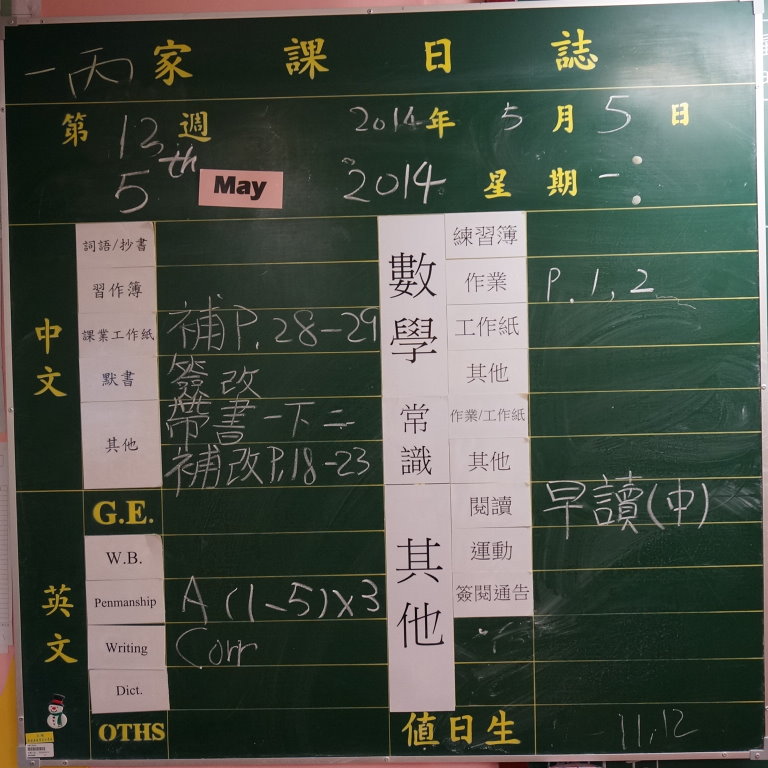 一丙家課日誌
第13週 2014年5月5日
5th May 2014 星期一
中文
詞語/抄書
習作簿
課業工作紙 補P.28-29
默書 簽改
其他 帶書一下二
補改P.18-23
英文
G.E.
W.B.
Penmanship A(1-5)x3
Writing Corr
Dict.
OTHS
數學
練習簿
作業 P.1,2
工作紙
其他
常識
作業/工作紙
其他
其他
閱讀 早讀(中)
運動
簽閱通告
值日生 11,12